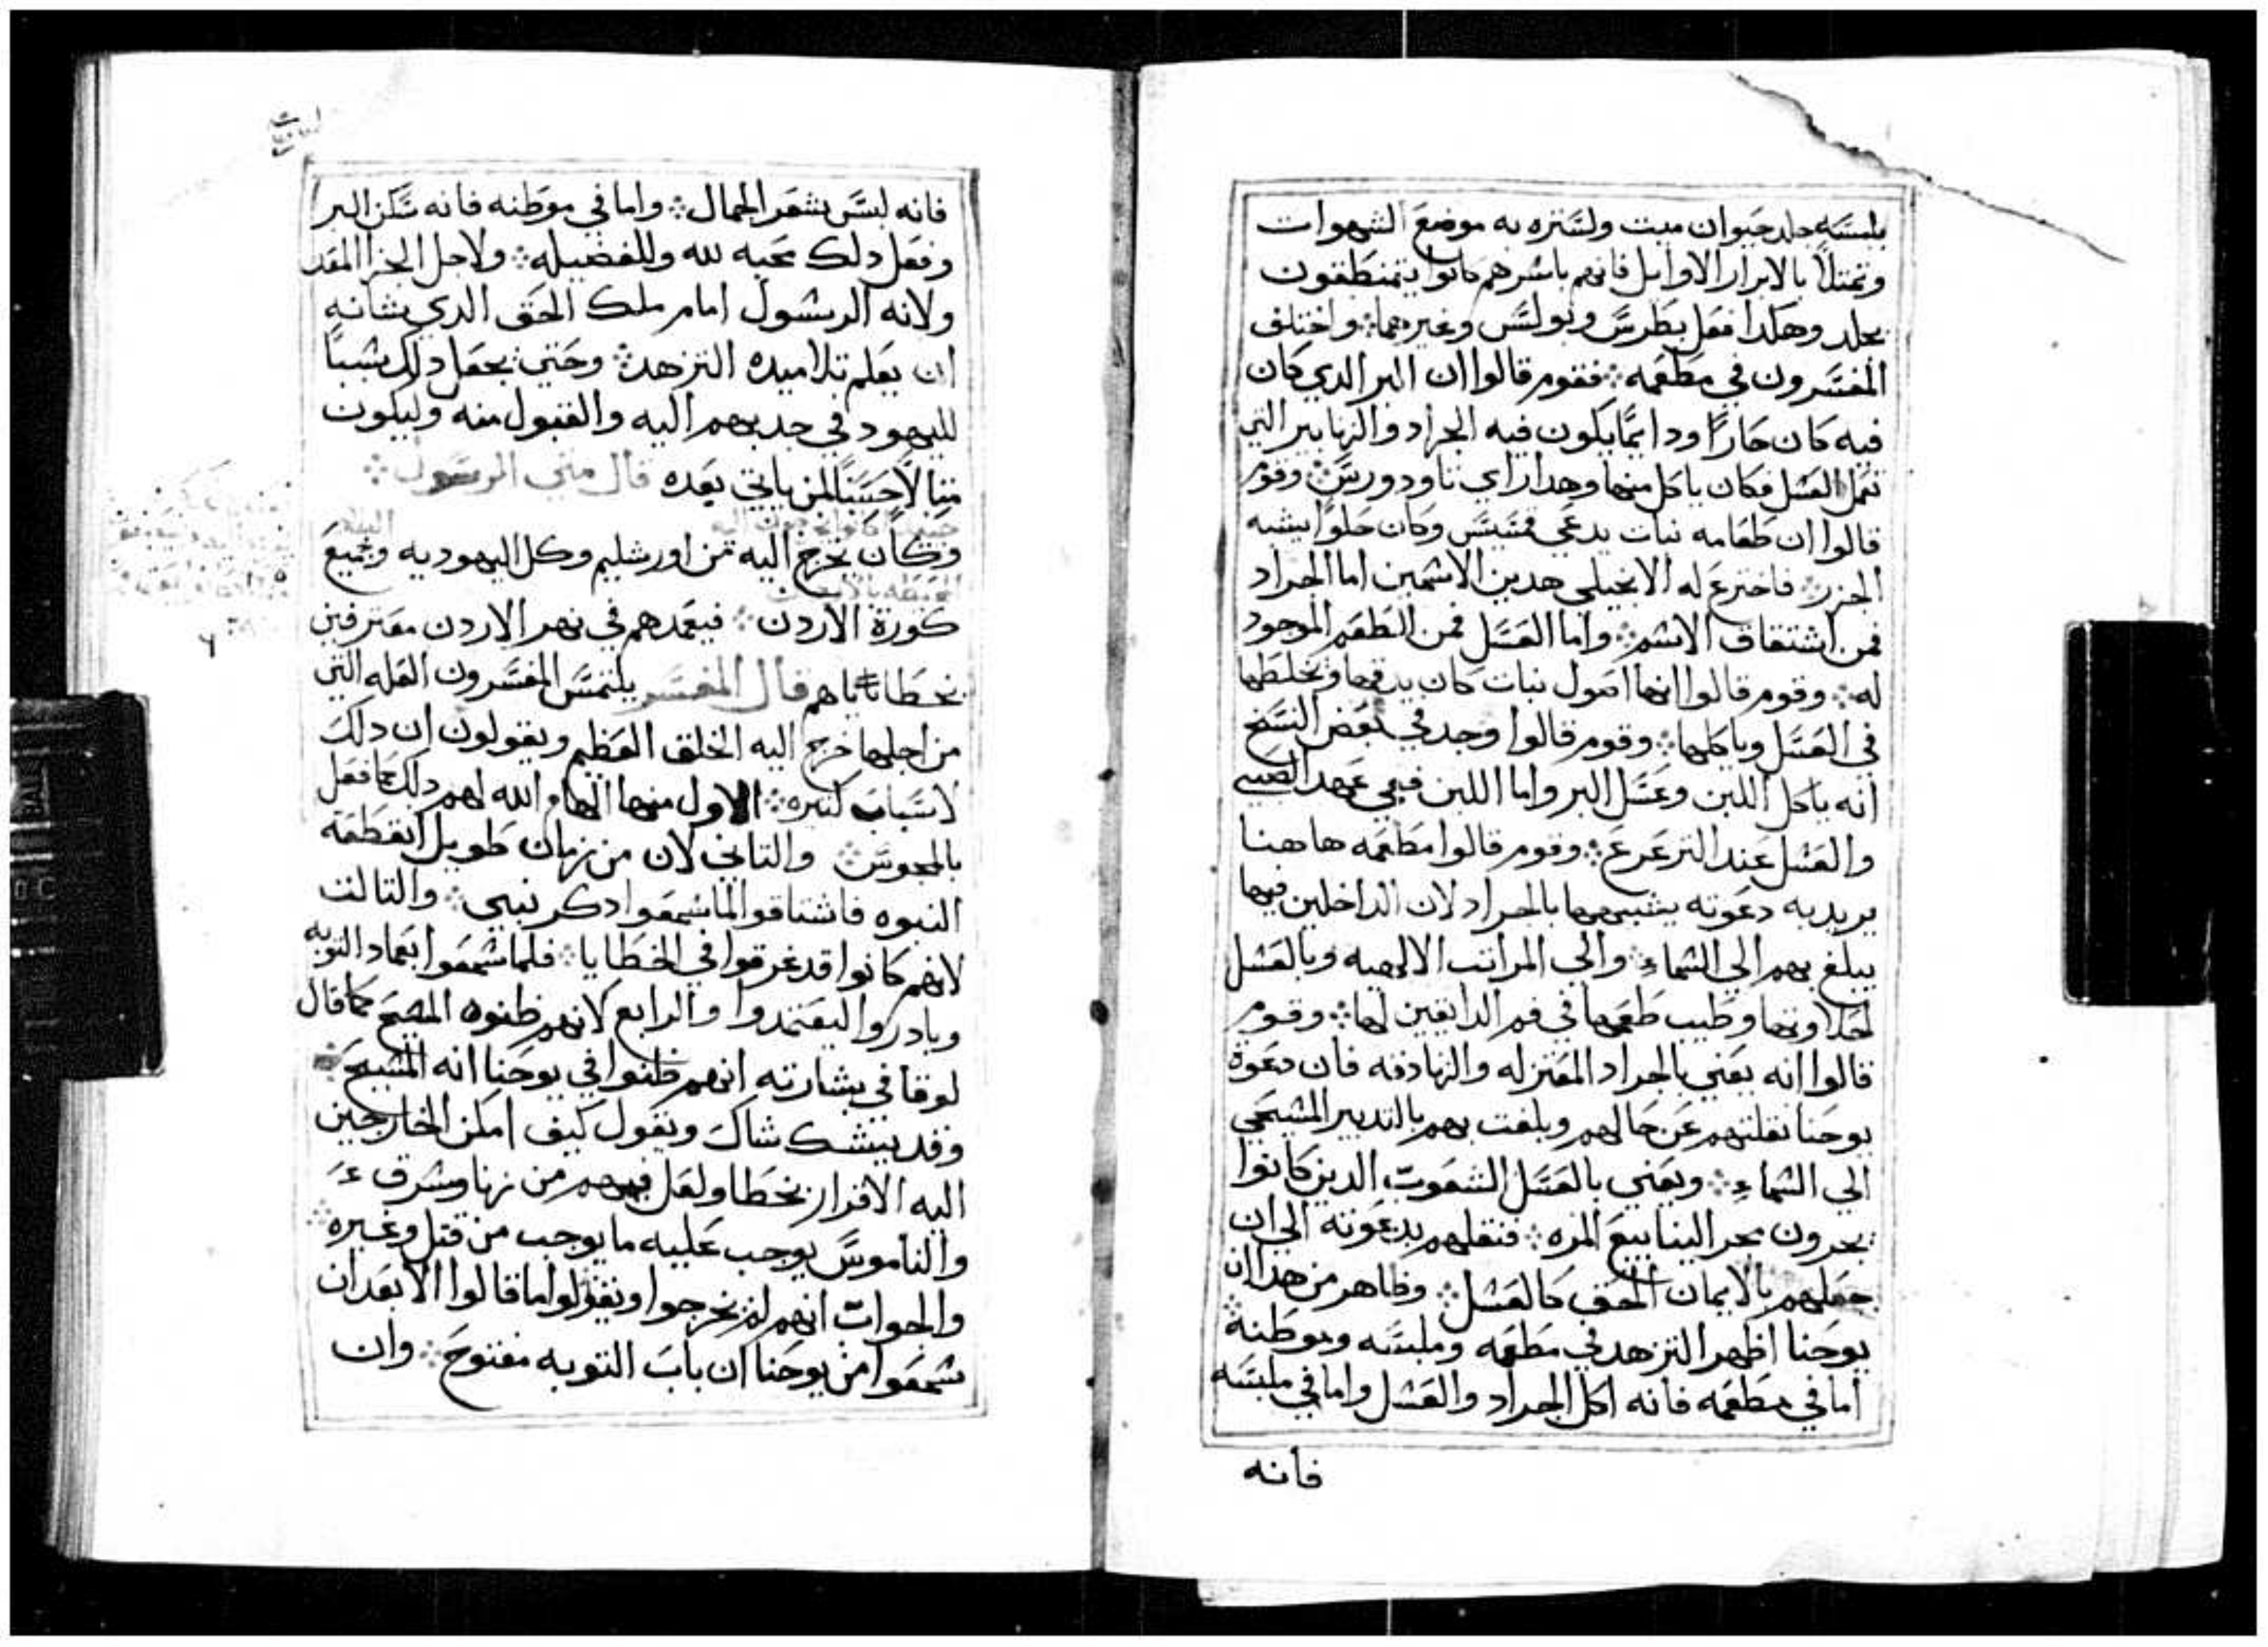 بلبسه جلد حيوان ميت ولستره به موضع الشهوات
وتمتلاً بالابرار الاوايل فانهم باسرهم كانوا يتمنطقون
بجلد وهكدا فعل بطرس وبولس وغيرهما ܀ واختلف
المفسرون في مطعمه ܀ فقوم قالوا ان البر الدي كان
فيه كان حاراً ودايمًا يكون فيه الجراد والزنابير التي
تعمل العسل فكان ياكل منها وهدا راي تاودورس ܀ وقوم
قالوا ان طعامه نبات يدعي قسيس وكان حلوًا يشبه
الجزر ܀ فاخترع له الانجيلي هدين الاسمين اما الجراد
فمن اشتقاق الاسم ܀ واما العسل فمن الطعم الموجود
له ܀ وقوم قالوا انها اصول نبات كان يدقها ويخلطها
في العسل وياكلها ܀ وقوم قالوا وجد في بعض النسخ
انه ياكل اللبن وعسل البر واما اللبن ففي عهد الصبي
والعسل عند الترعرع ܀ وقوم قالوا مطعمه هاهنا
يريد به دعوته يشبهها بالجراد لان الداخلين فيها
يبلغ بهم الي السماء ܀ والي المراتب الالهيه وبالعسل
لحلاوتها وطيب طعمها في فم الدايقين لها ܀ وقوم
قالوا انه يعني بالجراد المعتزله والزنادقه فان دعوة
يوحنا نقلتهم عن حالهم وبلغت بهم بالتدبير المسيحي
الي السماء ܀ ويعني بالعسل الشعوب الدين كانوا
يجرون مجر الينابيع المره ܀ فنقلهم بدعوته الي ان
جعلهم بالايمان الحق كالعسل ܀ وظاهر من هدا ان
يوحنا اظهر التزهد في مطعمه وملبسه وموطنه ܀
اما في مطعمه فانه اكل الجراد والعسل واما في ملبسه
فانه
فانه لبس بشعر الجمال ܀ واما في موطنه فانه سكن البر
وفعل دلك محبه لله وللفضيله ܀ ولاجل الجزا المعد
ولانه الرسول امام ملك الحق الدي شانه
ان يعلم تلاميده التزهد ܀ وحتي يجعل دلك سببًا
لليهود في جدبهم اليه والقبول منه وليكون
مثالاً حسنًا لمن ياتي بعده قال متي الرسول ܀
وكان يخرج اليه من اورشليم وكل اليهوديه وجميع
كورة الاردن ܀ فيعمدهم في نهر الاردن معترفين
بخطاياهم قال المفسر يلتمس المفسرون العله التي
من اجلها خرج اليه الخلق العظيم ويقولون ان دلك
لاسباب كثيره ܀ الاول منها الهام الله لهم دلك كما فعل
بالمجوس ܀ والتاني لان من زمان طويل انقطعة
النبوه فاشتاقوا لما سمعوا دكر نبي ܀ والتالت
لانهم كانوا قد غرقوا في الخطايا ܀ فلما سمعوا بعماد التوبه
وبادروا ليعتمدوا والرابع لانهم ظنوه المسيح كما قال
لوقا في بشارته انهم ظنوا في يوحنا انه المسيح ܀
وقد يتشكك شاك ويقول كيف امكن الخارجين
اليه الاقرار بخطا ولعل فيهم من زنا وسرق
والناموس يوجب عليه ما يوجب من قتل وغيره ܀
والجواب انهم لم يخرجوا ويقولوا ما قالوا الا بعد ان
سمعوا من يوحنا ان باب التوبه مفتوح ܀ وان